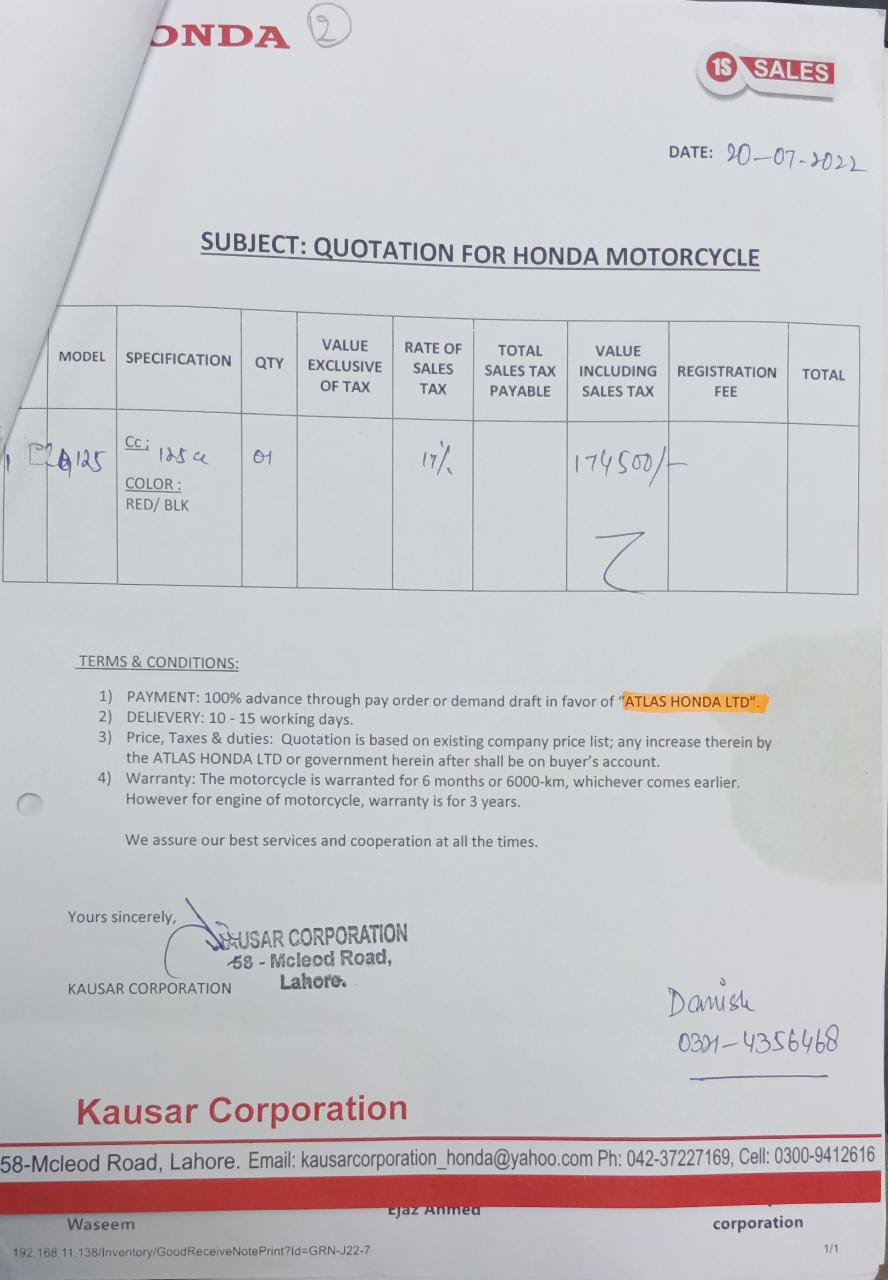 ONDA 2
1S SALES
DATE: 20-07-2022
SUBJECT: QUOTATION FOR HONDA MOTORCYCLE
MODEL SPECIFICATION QTY VALUE EXCLUSIVE OF TAX RATE OF SALES TAX TOTAL SALES TAX PAYABLE VALUE INCLUDING SALES TAX REGISTRATION FEE TOTAL
125 Cc: 125 cc 01 17% 174500/-
COLOR:
RED/ BLK
TERMS & CONDITIONS:
1) PAYMENT: 100% advance through pay order or demand draft in favor of "ATLAS HONDA LTD".
2) DELIEVERY: 10 - 15 working days.
3) Price, Taxes & duties: Quotation is based on existing company price list; any increase therein by
the ATLAS HONDA LTD or government herein after shall be on buyer's account.
4) Warranty: The motorcycle is warranted for 6 months or 6000-km, whichever comes earlier.
However for engine of motorcycle, warranty is for 3 years.
We assure our best services and cooperation at all the times.
Yours sincerely,
KAUSAR CORPORATION
58 - Mcleod Road,
Lahore.
KAUSAR CORPORATION
Danish
0321-4356468
Kausar Corporation
58-Mcleod Road, Lahore. Email: kausarcorporation_honda@yahoo.com Ph: 042-37227169, Cell: 0300-9412616
Ejaz Ahmed
Waseem corporation
192.168.11.138/Inventory/GoodReceiveNotePrint?Id=GRN-J22-7 1/1